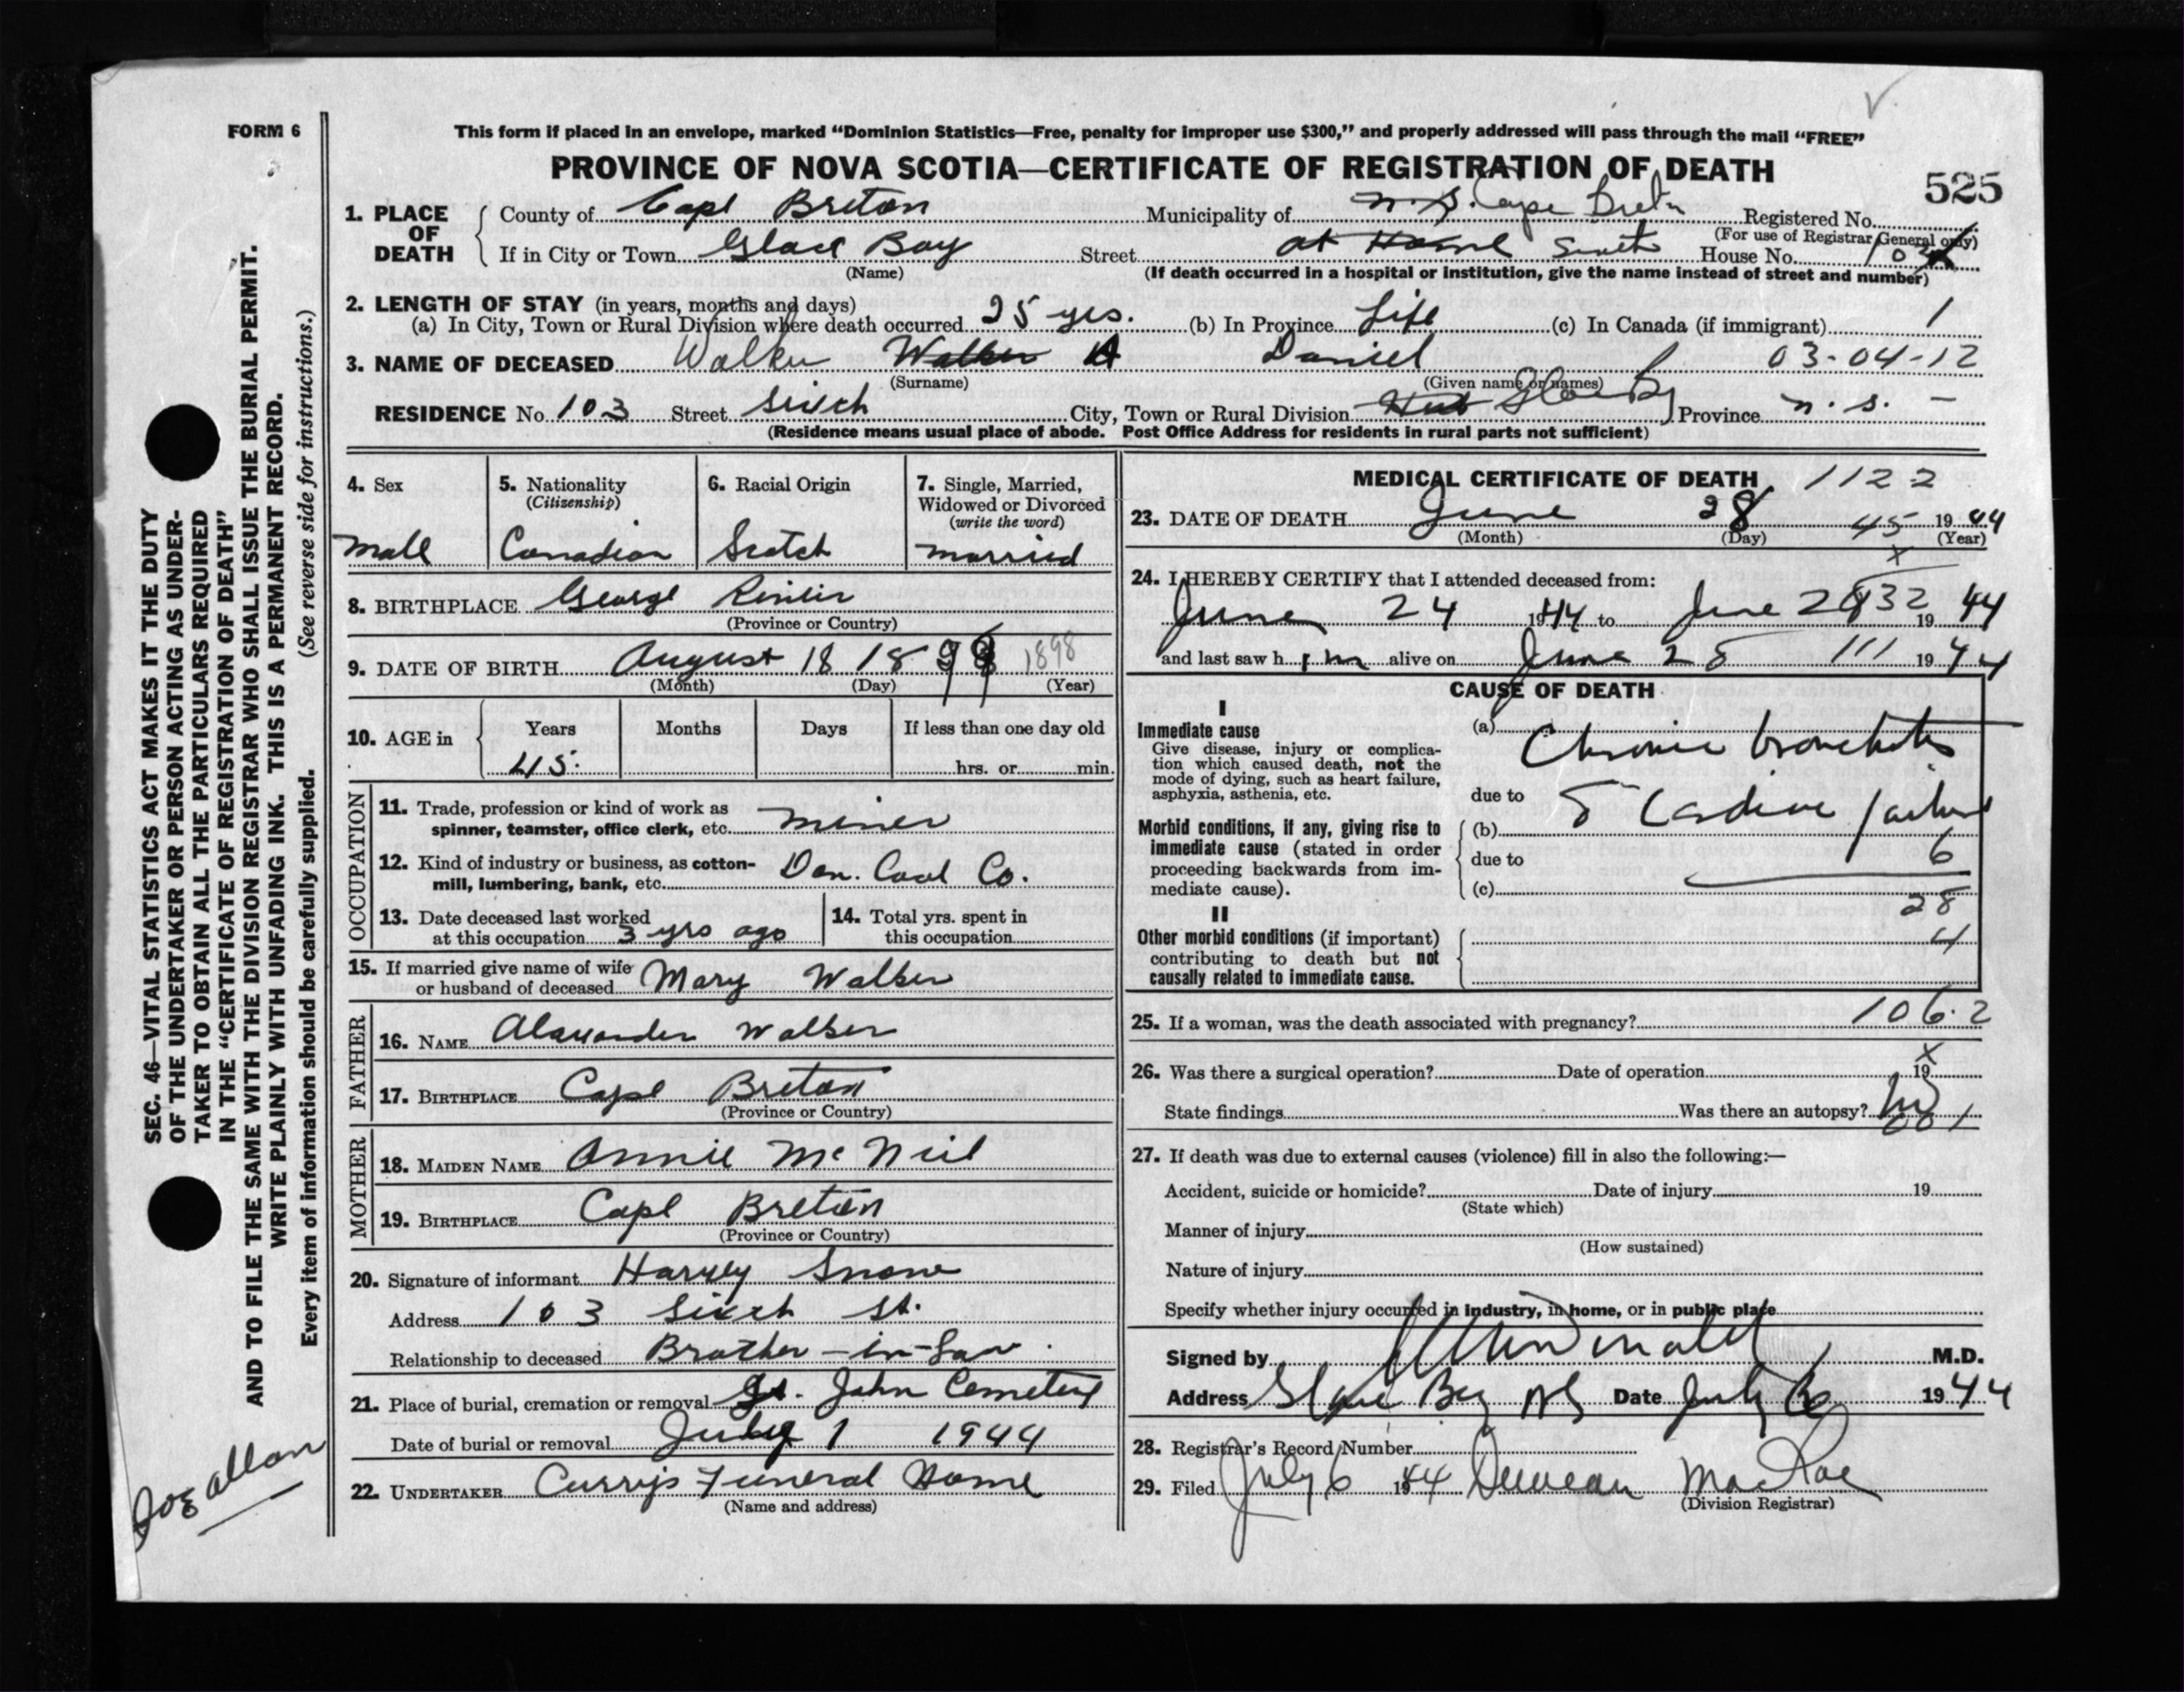 FORM 6
This form if placed in an envelope, marked “Dominion Statistics—Free, penalty for improper use $300,” and properly addressed will pass through the mail “FREE”
PROVINCE OF NOVA SCOTIA—CERTIFICATE OF REGISTRATION OF DEATH
525
1. PLACE OF DEATH
County of Cape Breton Municipality of N. S. Cape Breton Registered No.
(For use of Registrar General only)
If in City or Town Glace Bay Street at Home Sixth House No. 103
(Name) (If death occurred in a hospital or institution, give the name instead of street and number)
2. LENGTH OF STAY (in years, months and days)
(a) In City, Town or Rural Division where death occurred 25 yrs. (b) In Province Life (c) In Canada (if immigrant) 1
3. NAME OF DECEASED Walker Walker A Daniel 03-04-12
(Surname) (Given name or names)
RESIDENCE No. 103 Street Sixth City, Town or Rural Division Glace Bay Province N. S. -
(Residence means usual place of abode. Post Office Address for residents in rural parts not sufficient)
4. Sex
male
5. Nationality
(Citizenship)
Canadian
6. Racial Origin
Scotch
7. Single, Married,
Widowed or Divorced
(write the word)
married
8. BIRTHPLACE George River
(Province or Country)
9. DATE OF BIRTH August 18 1898 1898
(Month) (Day) (Year)
10. AGE in
Years Months Days If less than one day old
45. hrs. or min.
OCCUPATION
11. Trade, profession or kind of work as
spinner, teamster, office clerk, etc. miner
12. Kind of industry or business, as cotton-
mill, lumbering, bank, etc. Dom. Coal Co.
13. Date deceased last worked
at this occupation 3 yrs ago
14. Total yrs. spent in
this occupation
15. If married give name of wife
or husband of deceased Mary Walker
FATHER
16. NAME Alexander Walker
17. BIRTHPLACE Cape Breton
(Province or Country)
MOTHER
18. MAIDEN NAME Annie McNeil
19. BIRTHPLACE Cape Breton
(Province or Country)
20. Signature of informant Harvey Snow
Address 103 Sixth St.
Relationship to deceased Brother-in-Law.
21. Place of burial, cremation or removal St. John Cemetery
Date of burial or removal July 1 1944
22. UNDERTAKER Currys Funeral Home
(Name and address)
MEDICAL CERTIFICATE OF DEATH 1122
23. DATE OF DEATH June 28 45 1944
(Month) (Day) (Year)
x
24. I HEREBY CERTIFY that I attended deceased from:
June 24 1944 to June 28 32 1944
and last saw him alive on June 28 111 1944
CAUSE OF DEATH
I
Immediate cause
Give disease, injury or complica-
tion which caused death, not the
mode of dying, such as heart failure,
asphyxia, asthenia, etc.
(a) Chronic bronchitis
due to
Morbid conditions, if any, giving rise to
immediate cause (stated in order
proceeding backwards from im-
mediate cause).
(b) Cardiac failure
due to 6
(c) 28
II
Other morbid conditions (if important)
contributing to death but not
causally related to immediate cause.
4
106.2
25. If a woman, was the death associated with pregnancy?
x
26. Was there a surgical operation? Date of operation 19
State findings Was there an autopsy? No
001
27. If death was due to external causes (violence) fill in also the following:—
Accident, suicide or homicide? Date of injury 19
(State which)
Manner of injury
(How sustained)
Nature of injury
Specify whether injury occurred in industry, in home, or in public place
Signed by M.D.
Address Glace Bay NS Date July 6 1944
28. Registrar's Record Number
29. Filed July 6 1944 Duncan MacRae
(Division Registrar)
SEC. 46—VITAL STATISTICS ACT MAKES IT THE DUTY
OF THE UNDERTAKER OR PERSON ACTING AS UNDER-
TAKER TO OBTAIN ALL THE PARTICULARS REQUIRED
IN THE “CERTIFICATE OF REGISTRATION OF DEATH”
AND TO FILE THE SAME WITH THE DIVISION REGISTRAR WHO SHALL ISSUE THE BURIAL PERMIT.
WRITE PLAINLY WITH UNFADING INK. THIS IS A PERMANENT RECORD.
Every item of information should be carefully supplied. (See reverse side for instructions.)